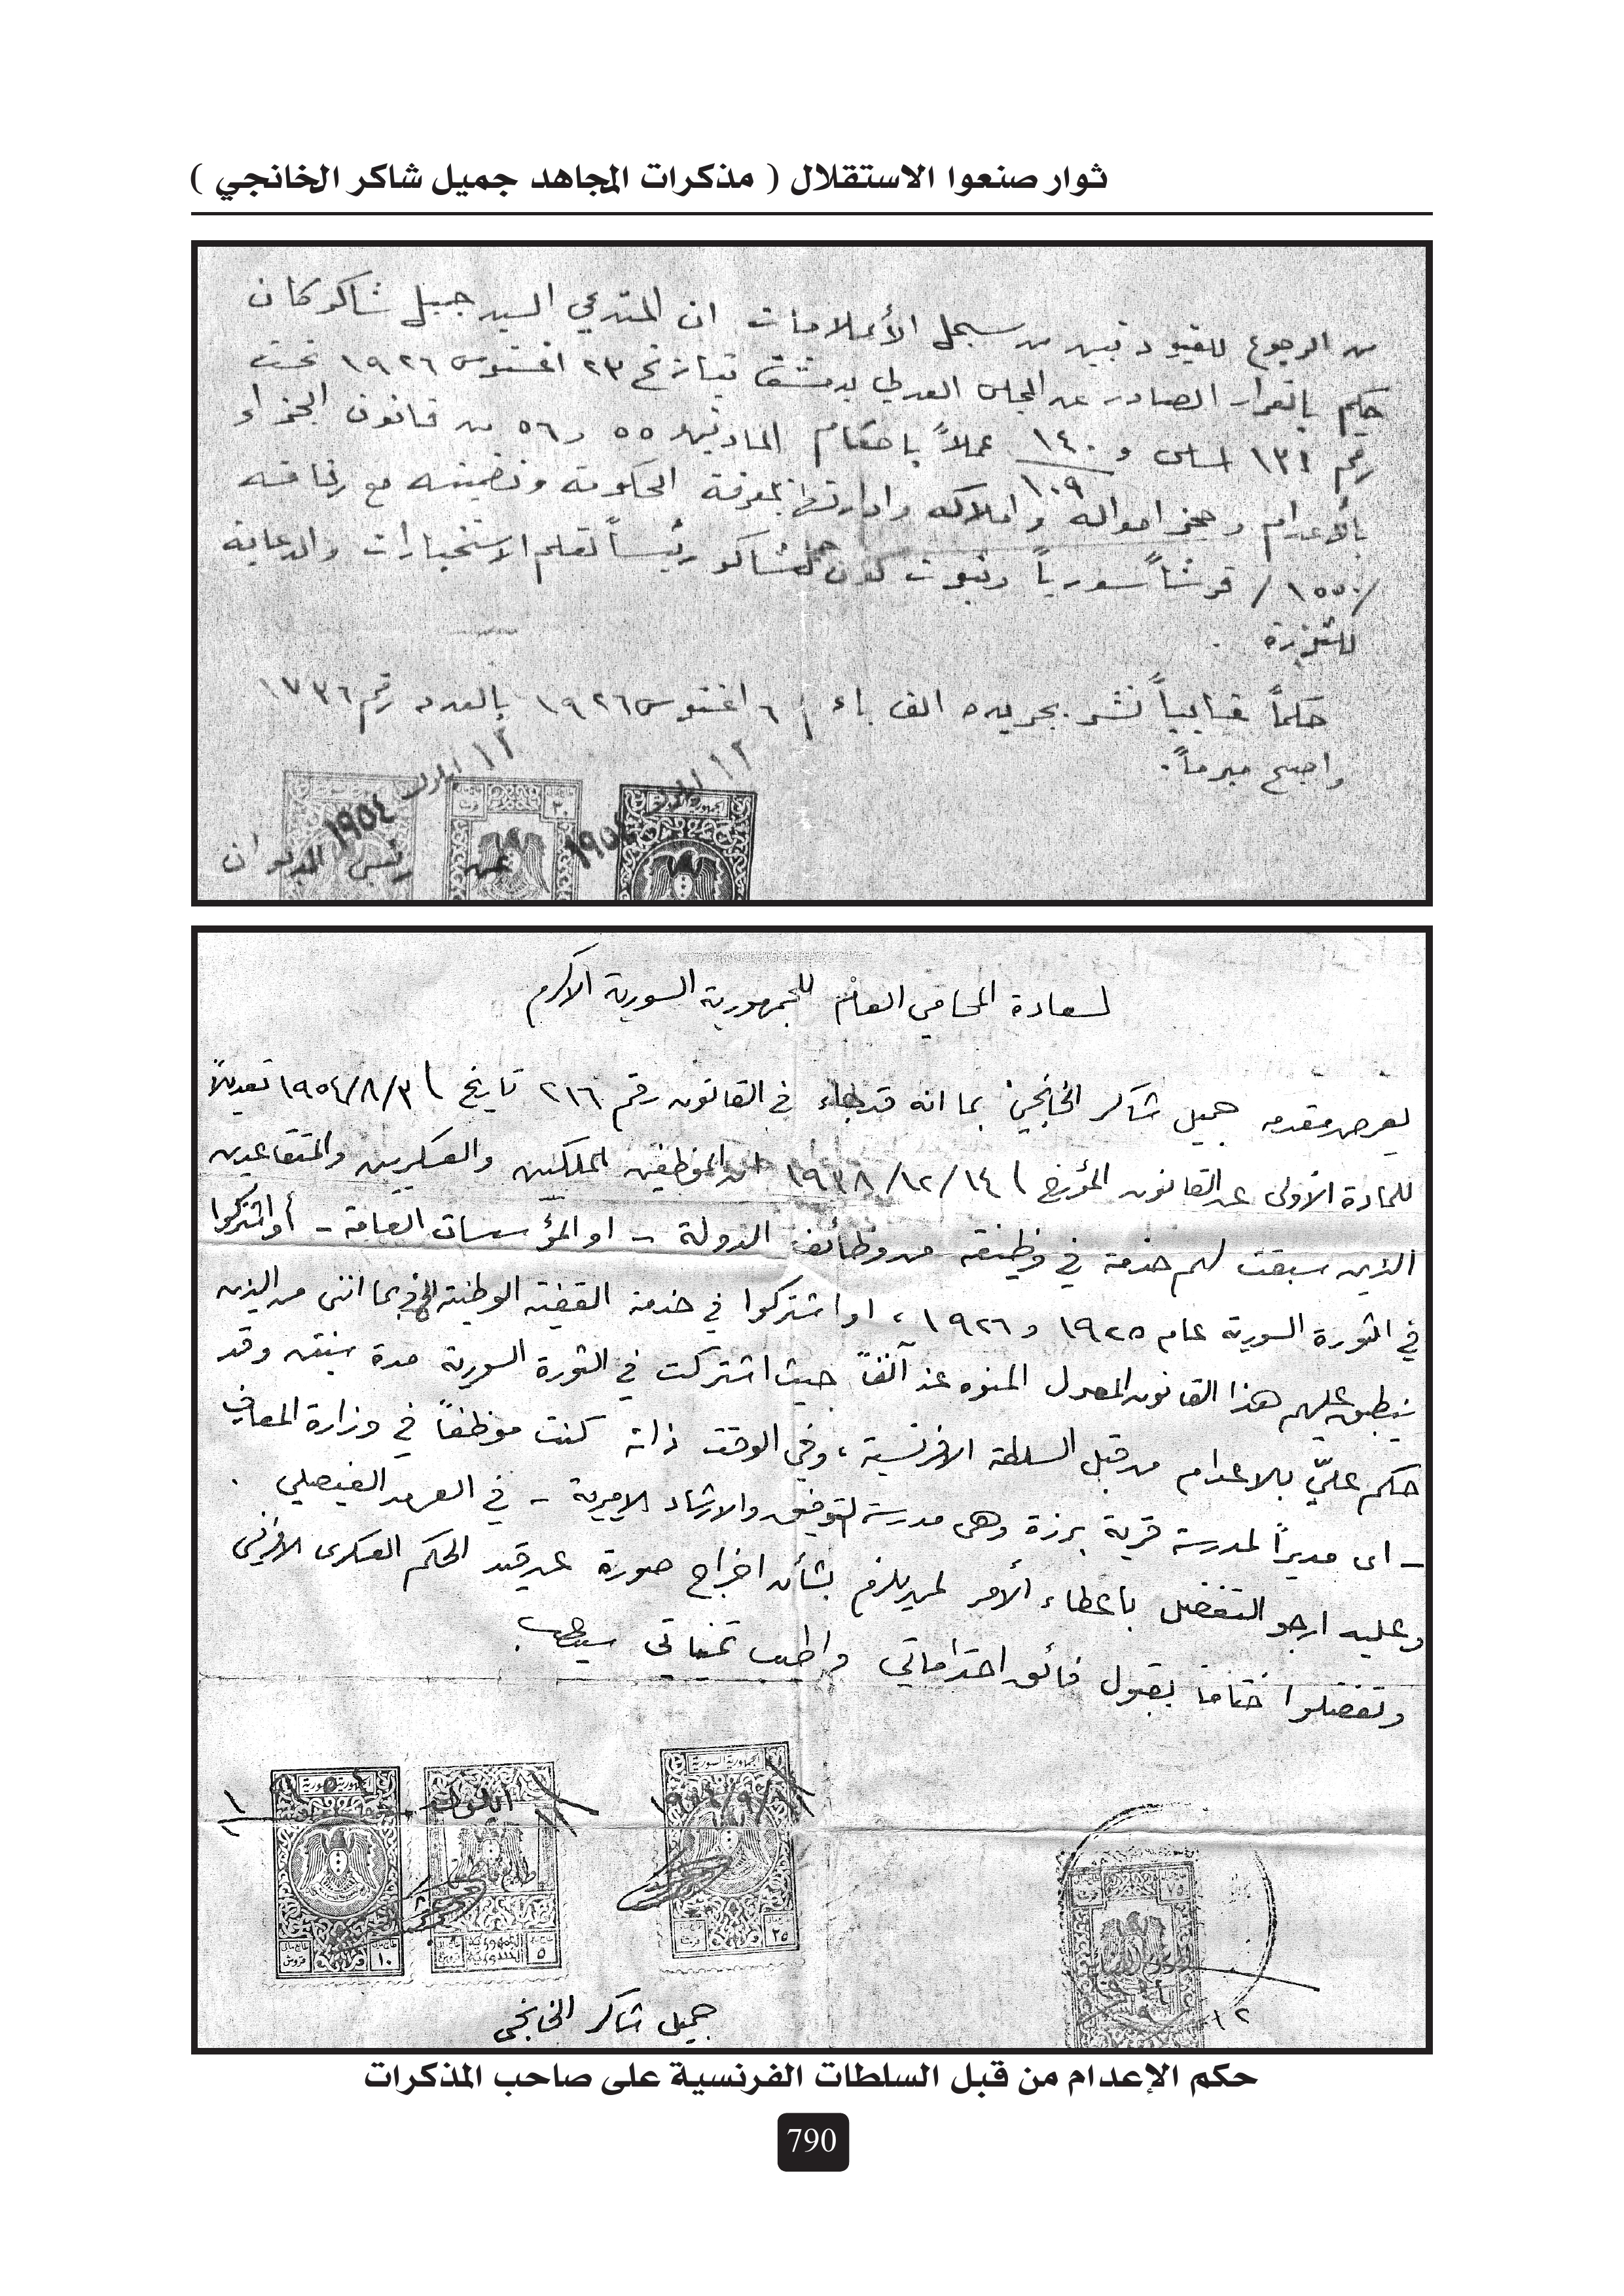 ثوار صنعوا الاستقلال ( مذكرات المجاهد جميل شاكر الخانجي )
من الرجوع للقيود تبين من سجل الأعلامات ان المستدعي السيد جميل شاكر كان
حكم بالقرار الصادر عن المجلس العدلي بدمشق بتاريخ ٢٣ اغستوس ١٩٢٦ تحت
رقم ١٣١ اساس و ١٤٠/١٠٩ عملاً باحكام المادتين ٥٥ و ٥٦ من قانون الجزاء
بالأعدام وحجز امواله واملاكه وادارتها بمعرفة الحكومة وتضمينه مع رفاقه
/١٥٥٠/ قرشاً سورياً وثبوت كون جميل شاكر رئيساً لقلم الاستخبارات والدعاية
للثورة .
حكماً غيابياً نشر بجريده الف باء / ٦ اغستوس ١٩٢٦ بالعدد رقم ١٧٣٦
واصبح مبرماً.
١٢ ايلول ١٩٥٤
١٢ ايلول ١٩٥٤
عن رئيس الديوان
لسعادة المحامي العام للجمهورية السورية الاكرم
يعرض مقدمه جميل شاكر الخانجي بما انه قد جاء في القانون رقم ٢١٦ تاريخ ١٩٥٤/٨/٣١ تعديلاً
للمادة الاولى عن القانون المؤرخ ١٩٣٨/١٢/١٤ ان الموظفين الملكين والعسكريين والمتقاعدين
الذين سبقت لهم خدمة في وظيفة من وظائف الدولة – او المؤسسات العامة – أو اشتركوا
في الثورة السورية عام ١٩٢٥ و ١٩٢٦، او اشتركوا في خدمة القضية الوطنية الخ وبما انني من الذين
ينطبق عليهم هذا القانون المعدل المنوه عنه آنفاً حيث اشتركت في الثورة السورية مدة سنتين وقد
حكم عليّ بالاعدام من قبل السلطة الافرنسية، وفي الوقت ذاته كنت موظفاً في وزارة المعارف
– اي مديراً لمدرسة قرية برزة وهي مدرسة التوفيق والارشاد الاميرية – في العهد الفيصلي .
وعليه ارجو التفضل باعطاء الأمر لمن يلزم بشأن اخراج صورة عن قيد الحكم العسكري الافرنسي
وتفضلوا ختاماً بقبول فائق احتراماتي واطيب تمنياتي سيدي
الجمهورية السورية
١٠
قروش
٥
٢٥
٧٥
١٢
جميل شاكر الخانجي
حكم الإعدام من قبل السلطات الفرنسية على صاحب المذكرات
790